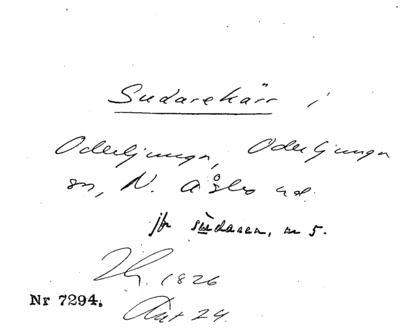 Sudarekärr i
Oderljunga, Oderljunga
sn, N. Åsbo hd.
jfr sudaren, nr 5.
1826
Nr 7294. Akt 24.